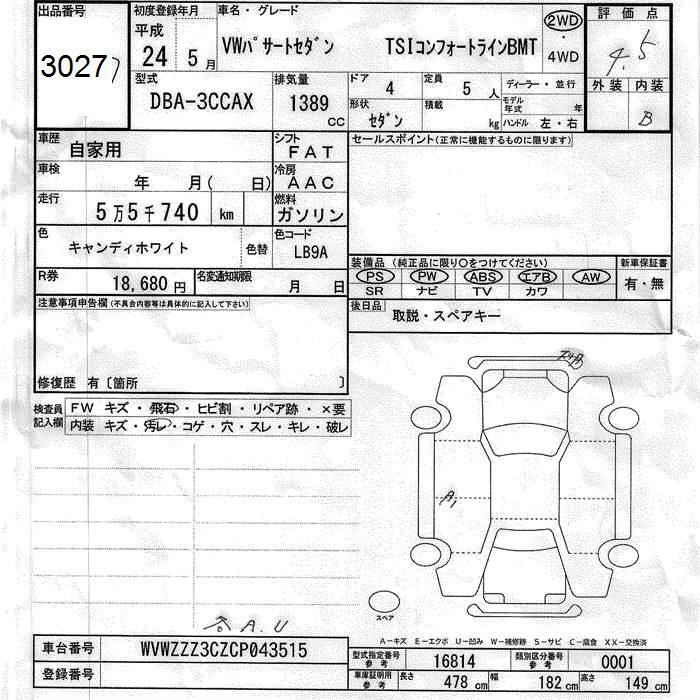 出品番号
30277
初度登録年月
平成
24 5月
車名・グレード
VWパサートセダン TSIコンフォートラインBMT
2WD
・
4WD
評価点
4.5
外装 内装
B
型式
DBA-3CCAX
排気量
1389
CC
ドア
4
定員
5 人
ディーラー・並行
形状
セダン
積載
kg
モデル
年式 年
ハンドル 左・右
車歴
自家用
シフト
FAT
セールスポイント(正常に機能するものに限ります)
車検
年 月( 日)
冷房
AAC
走行
5万5千740 km
燃料
ガソリン
色
キャンディホワイト
色替
色コード
LB9A
装備品 (純正品に限り〇をつけてください)
PS PW ABS エアB AW
SR ナビ TV カワ
新車保証書
有・無
R券
18,680円
名変通知期限
月 日
後日品
取説・スペアキー
注意事項申告欄(不具合内容等は具体的に記入して下さい)
修復歴 有〔箇所 〕
検査員
記入欄
FW キズ・飛石・ヒビ割・リペア跡・×要
内装 キズ・汚レ・コゲ・穴・スレ・キレ・破レ
A1
スペア
A.U
A-キズ E-エクボ U-凹み W-補修跡 S-サビ C-腐食 XX-交換済
車台番号
WVWZZZ3CZCP043515
登録番号
型式指定番号
参考
16814
類別区分番号
参考
0001
車庫証明用
参考
長さ 478 cm 幅 182 cm 高さ 149 cm